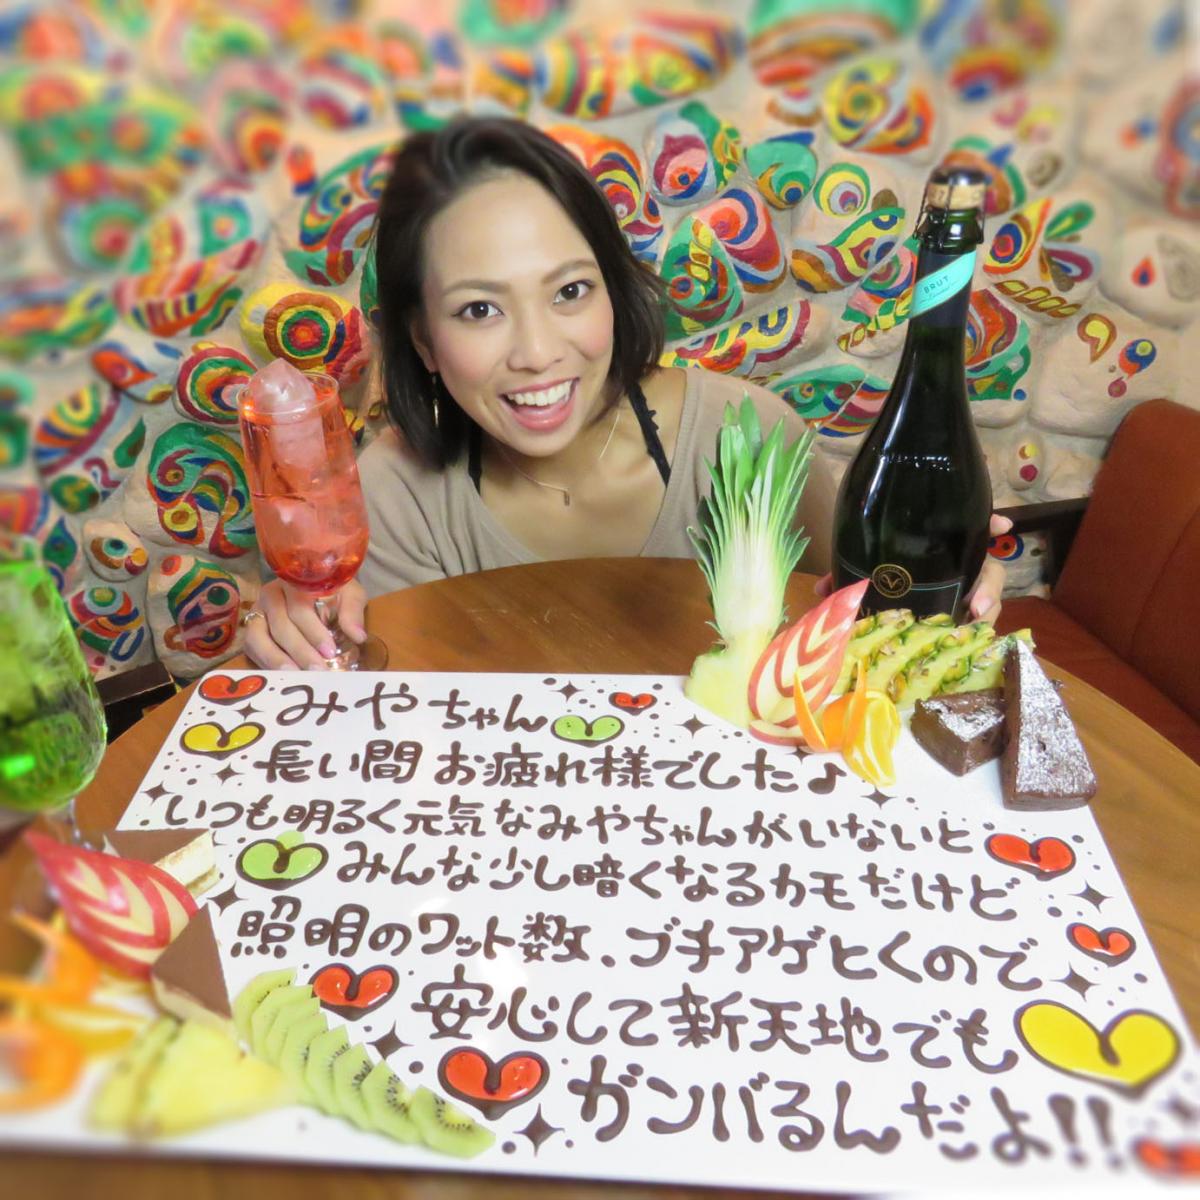 BRUT
みやちゃん
長い間 お疲れ様でした♪
いつも明るく元気なみやちゃんがいないと
みんな少し暗くなるカモだけど
照明のワット数、ブチアゲとくので
安心して新天地でも
ガンバるんだよ!!